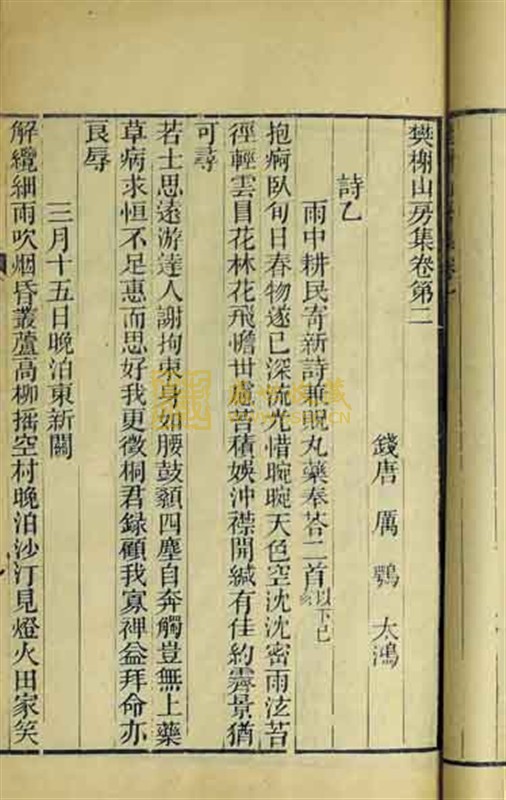 樊榭山房集卷第二
錢唐 厲 鶚 太鴻
詩乙
雨中耕民寄新詩兼貺丸藥奉荅二首以下己亥
抱痾臥旬日春物遂已深流光惜晼晚天色空沈沈密雨泫苔
徑輕雲冒花林花飛憺世慮苔積娛沖襟開緘有佳約霽景猶
可尋
若士思遠游達人謝拘束身如腰鼓顙四塵自奔觸豈無上藥
草病求恒不足惠而思好我更徵桐君錄顧我寡裨益拜命亦
良辱
三月十五日晚泊東新關
解纜細雨吹烟昏叢蘆高柳搖空村晚泊沙汀見燈火田家笑